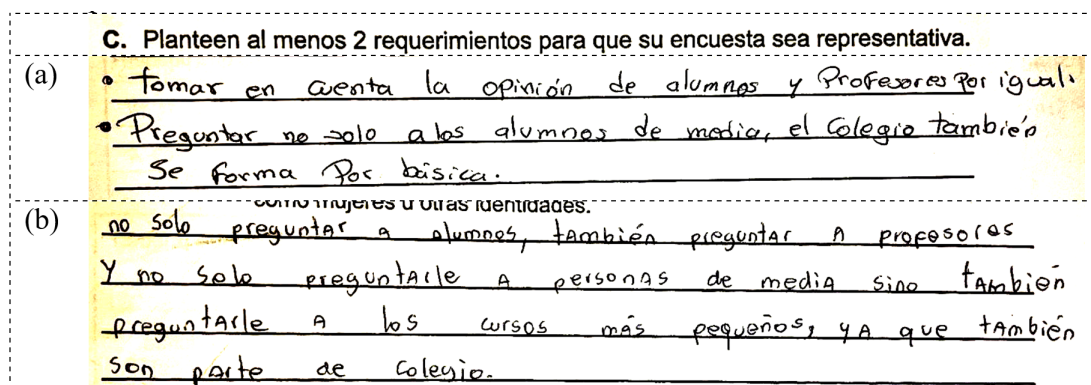 C. Planteen al menos 2 requerimientos para que su encuesta sea representativa.
(a)
• Tomar en cuenta la opinión de alumnos y Profesores Por igual.
• Preguntar no solo a los alumnos de media, el Colegio también
Se forma Por básica.
como mujeres u otras identidades.
(b)
no solo preguntar a alumnos, también preguntar a profesores
Y no solo preguntarle a personas de media sino también
preguntarle a los cursos más pequeños, ya que también
son parte de colegio.